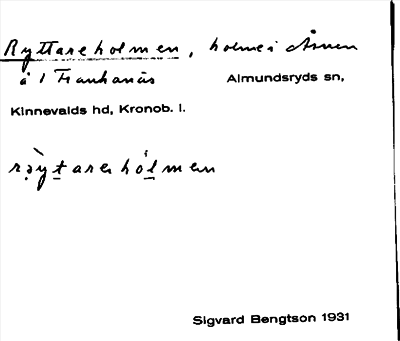 Ryttareholmen, holme i Åsnen
å 1 Franhanäs Almundsryds sn,
Kinnevalds hd, Kronob. l.
rø̀ytarehólmen
Sigvard Bengtson 1931